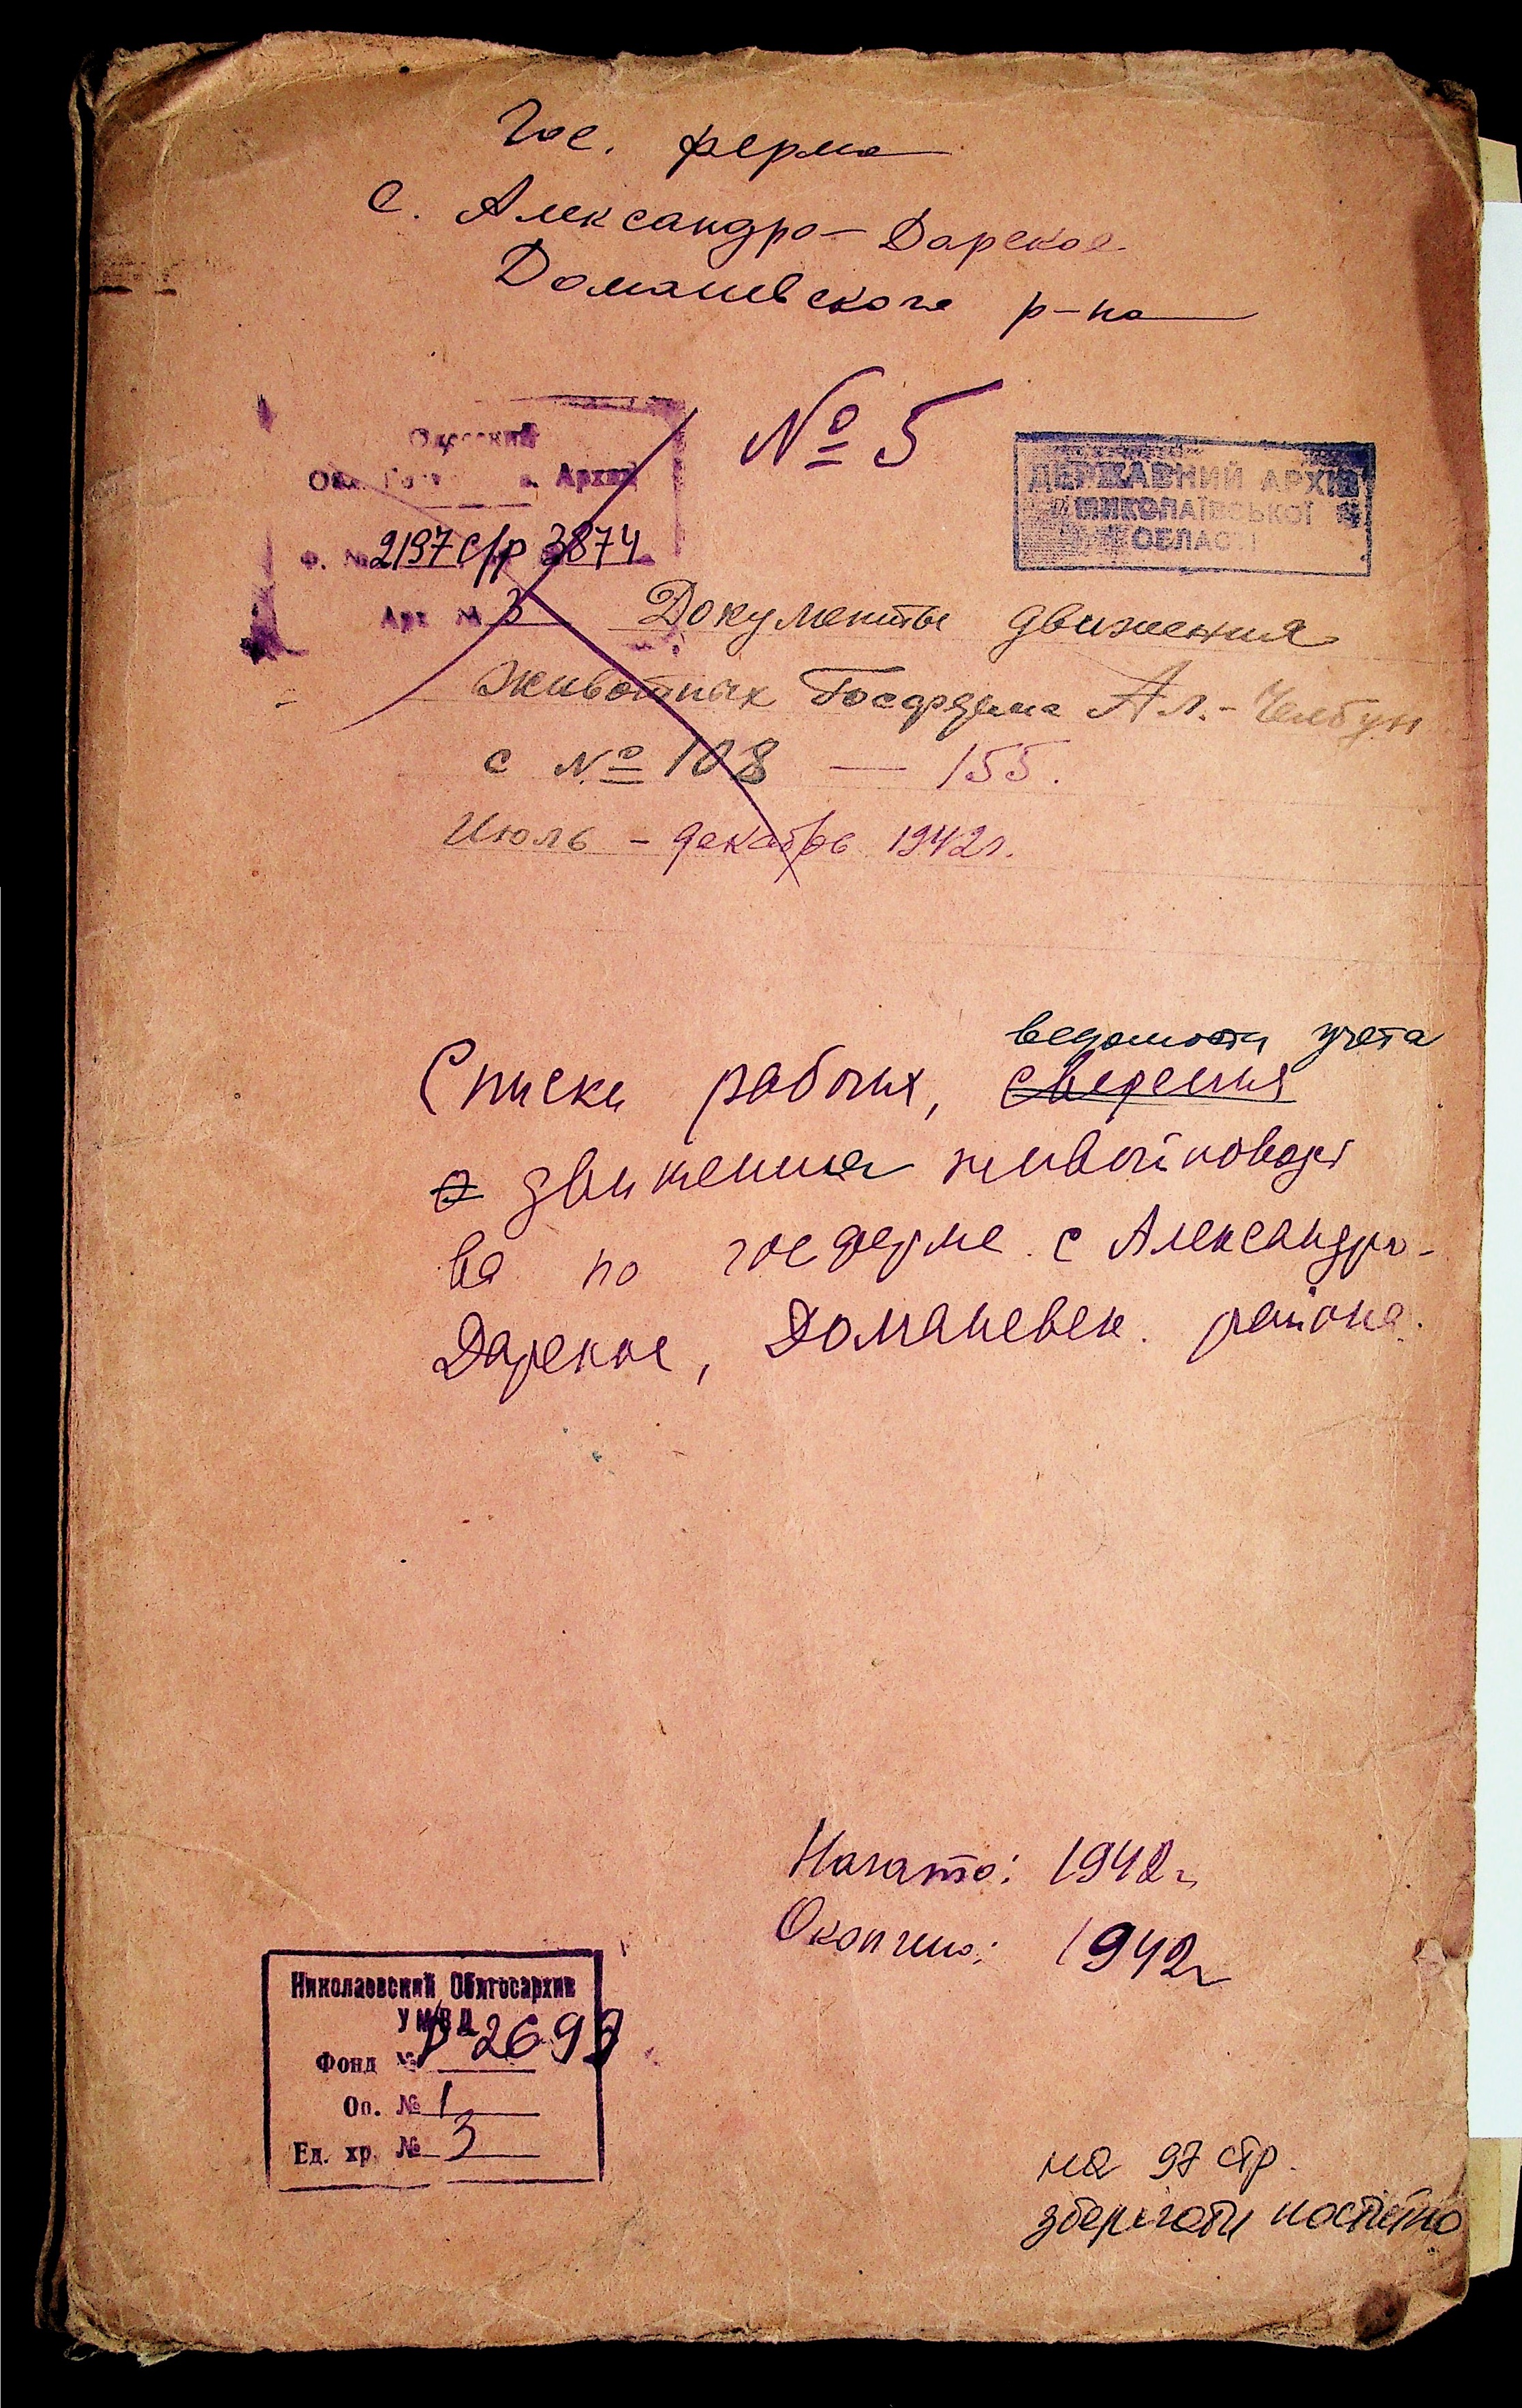 Гос. ферма
с. Александро-Дарское
Доманевского р-на
№ 5
Одесский
Архив
ДЕРЖАВНИЙ АРХІВ
МИКОЛАЇВСЬКОЇ
ОБЛАСТІ
Ф. № 2197 с/р 3874
Арх. № 3
Документы движения
животных Госферма Ал.-
с № 108 — 155.
Июль - декабрь 1942г.
ведомости учета
Списки рабочих, сведения
о движения живой
ва по госферме с Александро-
Дарское, Доманевск. района.
Начато: 1942г
Окончено: 1942г
Николаевский Облгосархив
УМВД
Фонд № Р 2699
Оп. № 1
Ед. хр. № 3
на 97 стр.
зберігати постійно